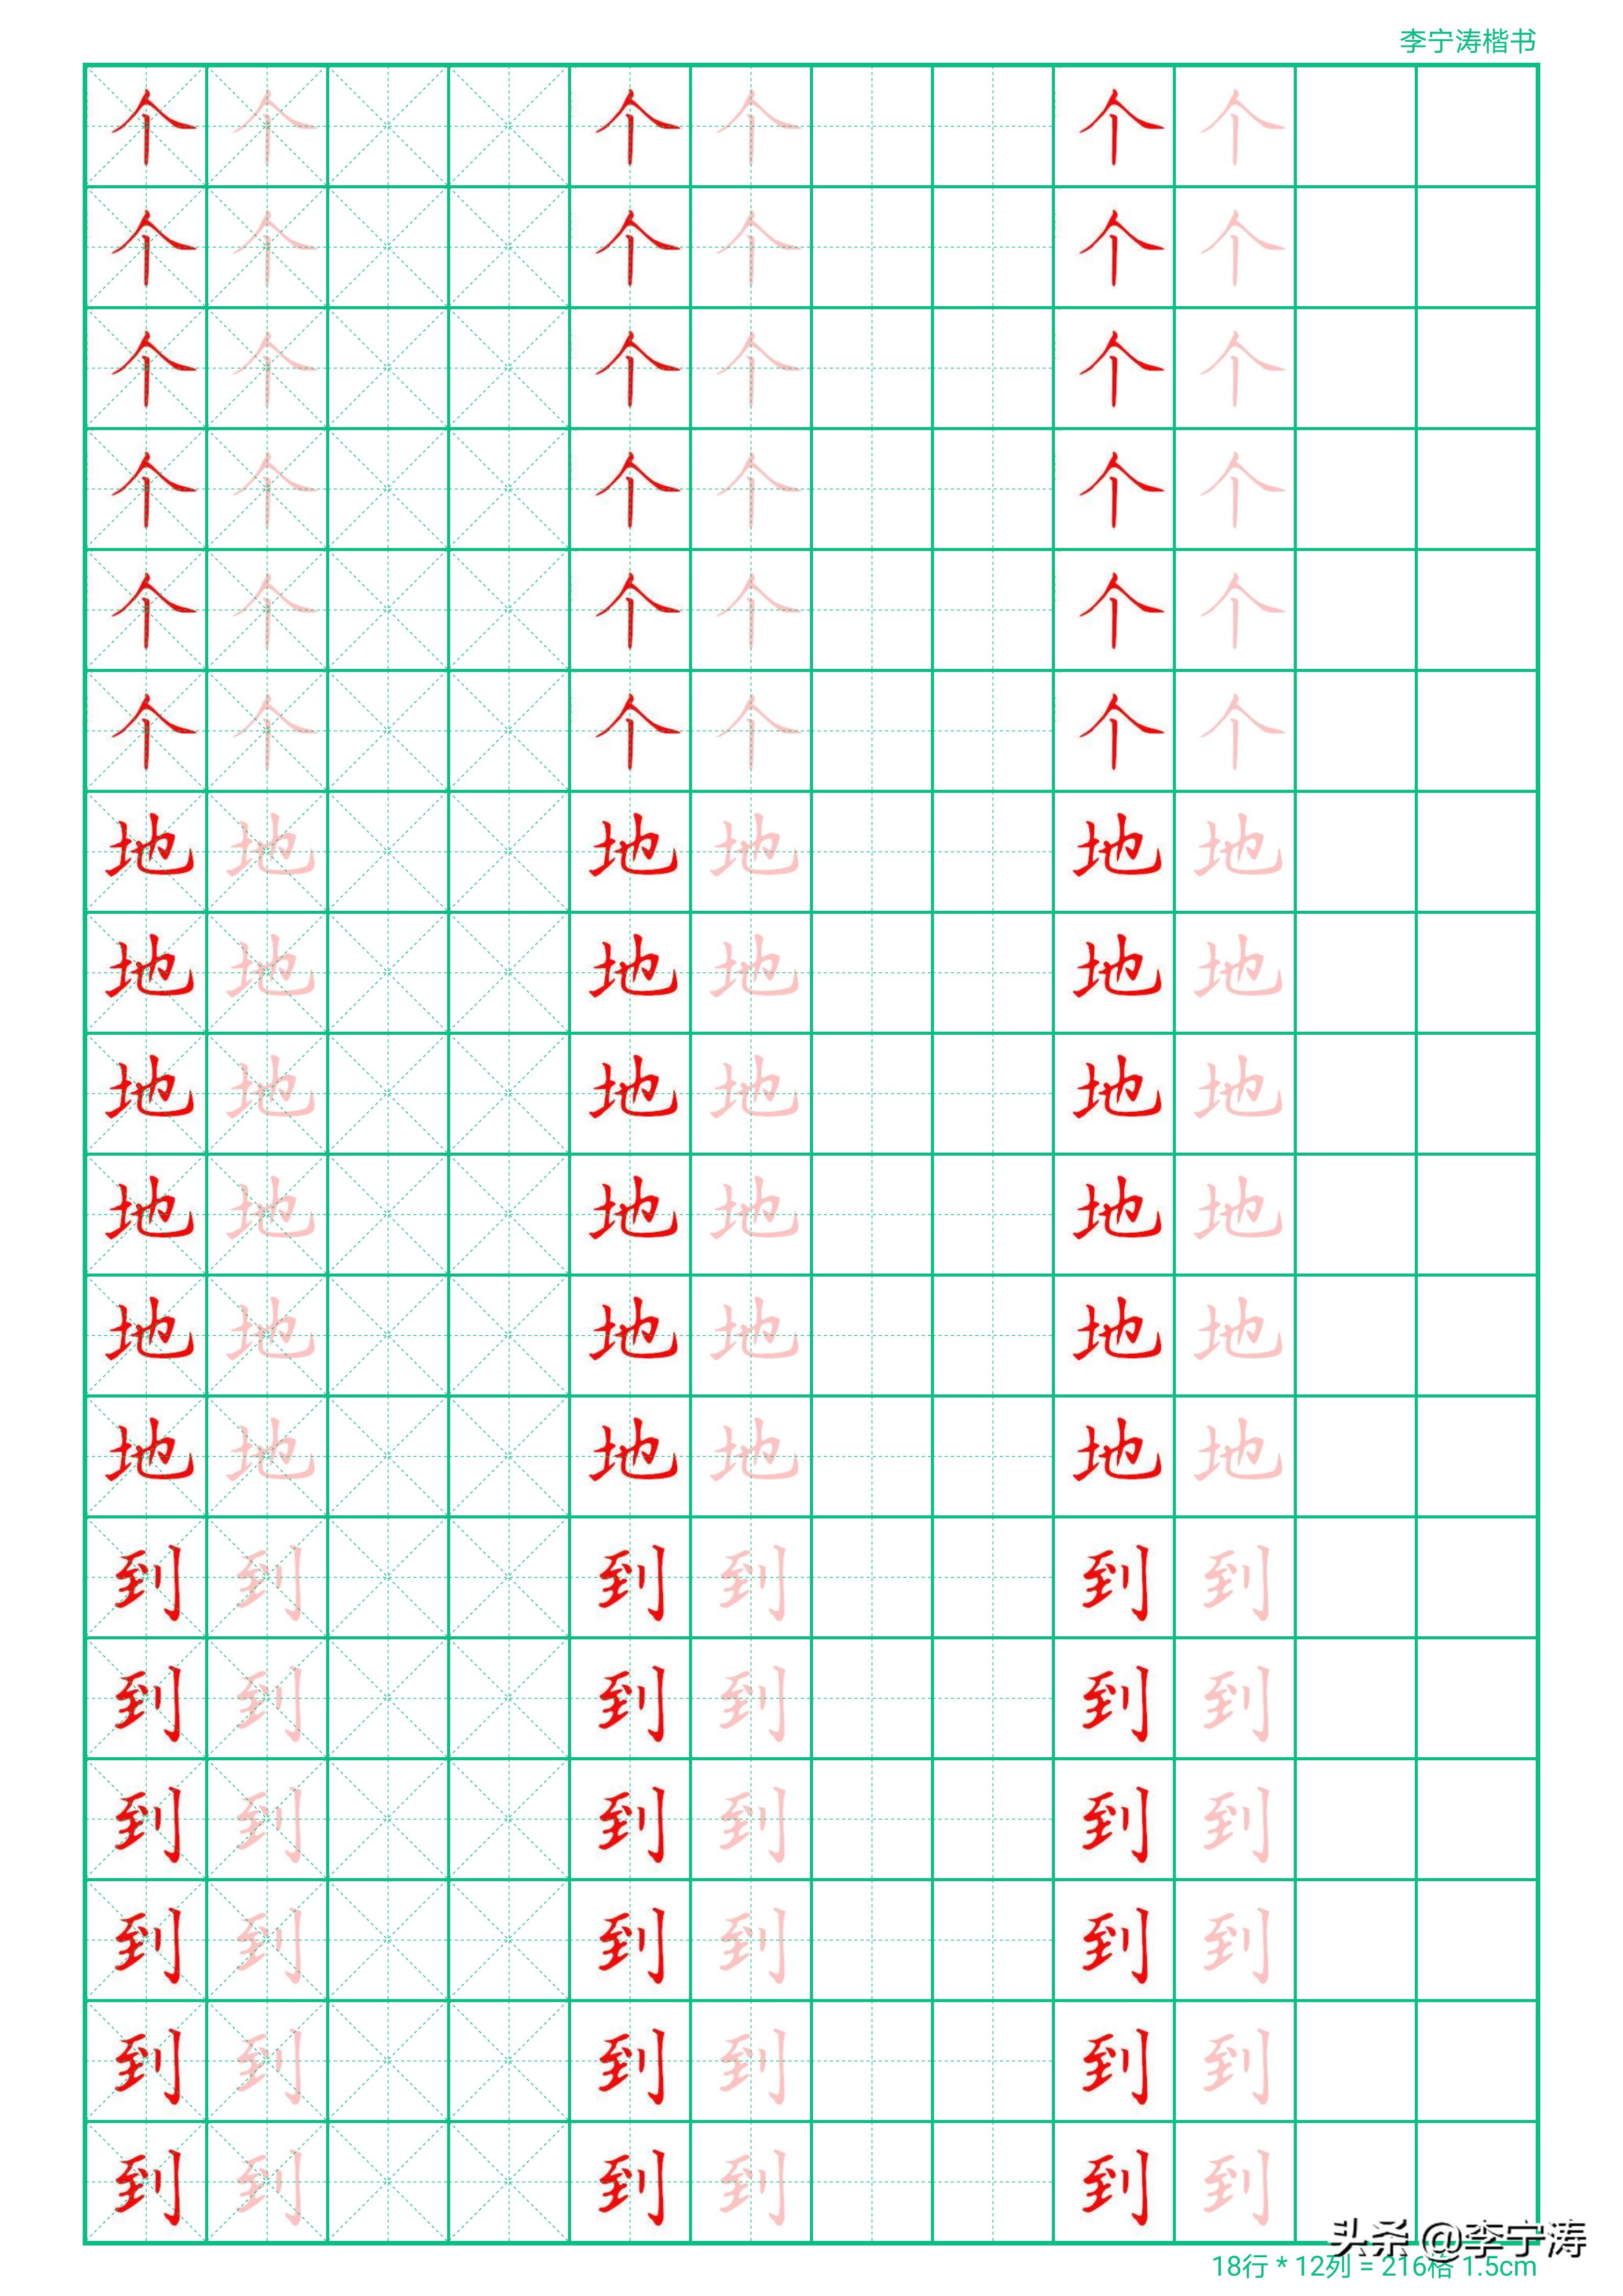 李宁涛楷书
个 个 个 个 个 个
个 个 个 个 个 个
个 个 个 个 个 个
个 个 个 个 个 个
个 个 个 个 个 个
个 个 个 个 个 个
地 地 地 地 地 地
地 地 地 地 地 地
地 地 地 地 地 地
地 地 地 地 地 地
地 地 地 地 地 地
地 地 地 地 地 地
到 到 到 到 到 到
到 到 到 到 到 到
到 到 到 到 到 到
到 到 到 到 到 到
到 到 到 到 到 到
到 到 到 到 到 到
头杀@李宁涛
18行 * 12列 = 216格 1.5cm